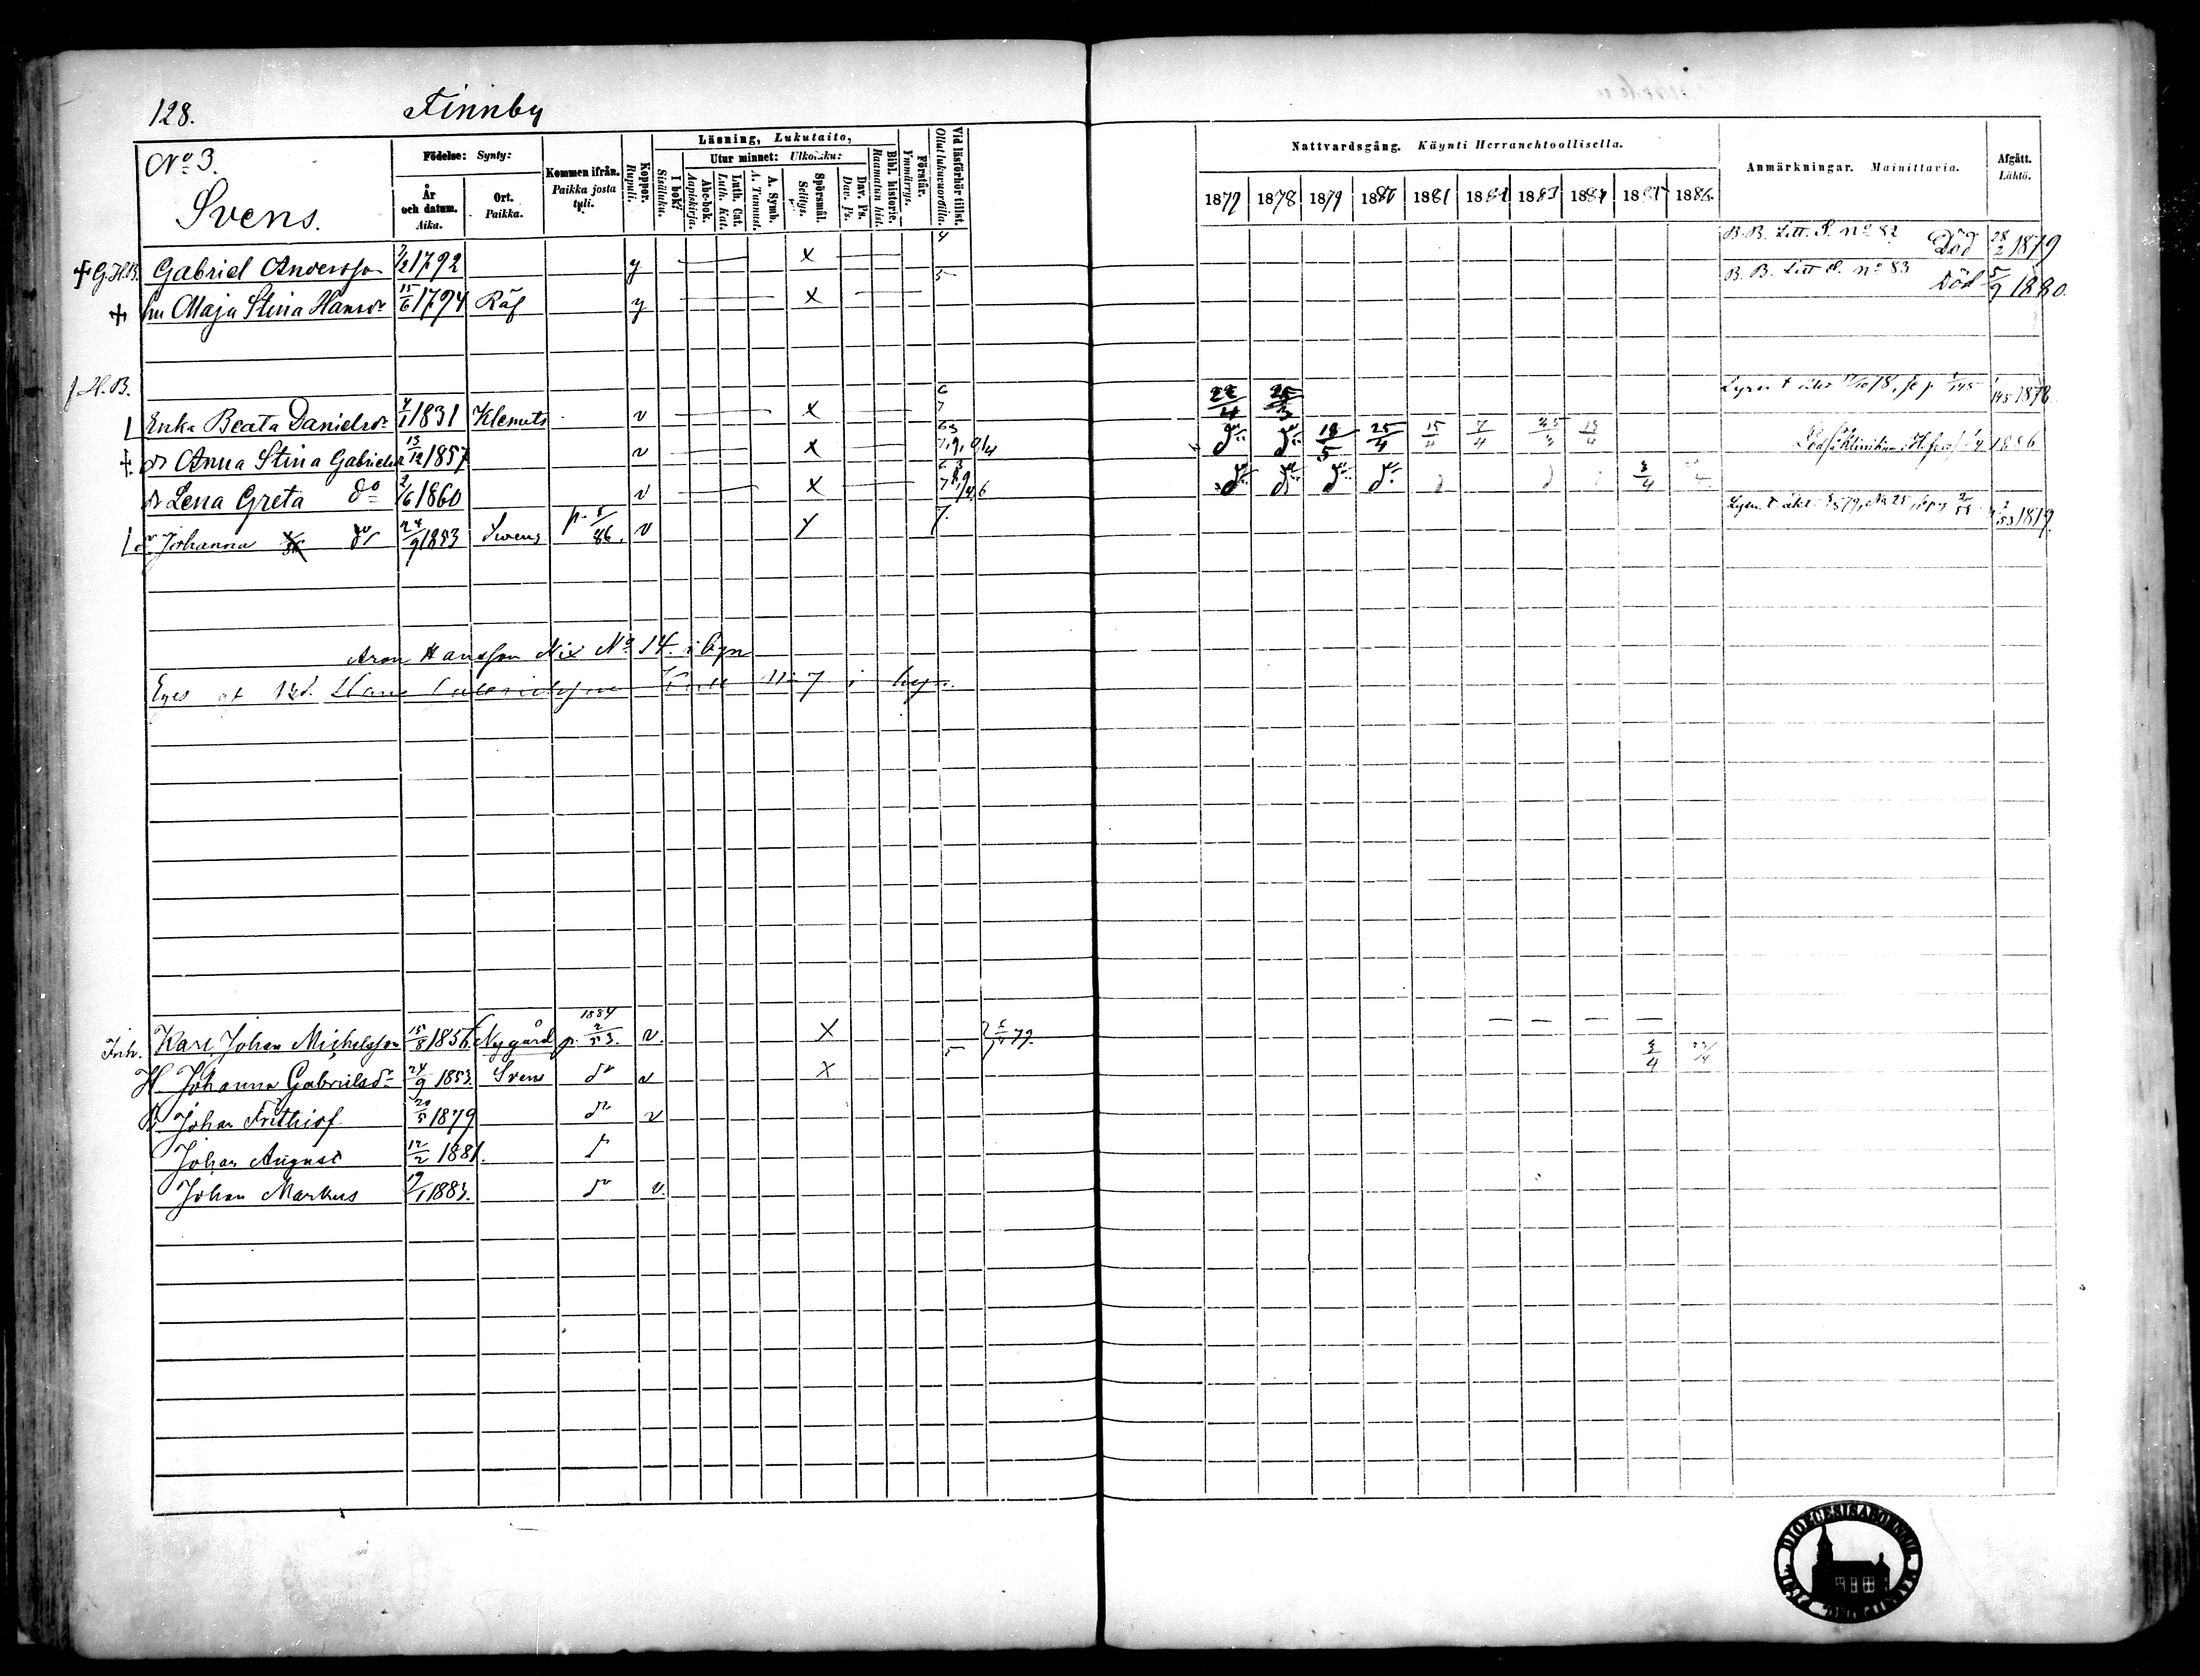 128. Finnby
No 3.
Svens.
Födelse: Synty:
År och datum. Aika.
Ort. Paikka.
Kommen ifrån. Paikka josta tuli.
Koppor. Rupuli.
Läsning, Lukutaito,
I bok: Sisäluku.
Utur minnet: Ulkoluku:
Abc-bok. Aapiskirja.
Luth. Cat. Luth. Kat.
A. Symb. A. Tunnust.
Spörsmål. Selitys.
Dav. Ps. Dav. Ps.
Bibl. historie. Raamatun hist.
Förstår. Ymmärrys.
Vid läsförhör tillst. Ollut lukuvuorolla.
Nattvardsgång. Käynti Herranehtoollisella.
1877 1878 1879 1880 1881 1882 1883 1884 1885 1886
Anmärkningar. Mainittavia.
Afgått. Lähtö.
G.H.B. Gabriel Andersson 7/2 1792 y x 4 B.B. Litt. S. no 82 Död 28/2 1879
hu Maja Stina Hansdr 15/6 1794 Räf y x 5 B.B. Litt S. no 83 Död 5/9 1880.
H.B.
Enka Beata Danielsdr 4/1 1831 Klemets v x 6 7 22/4 25/3 1878
dr Anna Stina Gabrielsdr 13/12 1857 v x do do 18/5 25/4 15/4 7/4 25/3 1886
dr Lena Greta do 2/6 1860 v x do do do do 3/4
dr Johanna do 24/9 1853 Svens v y 7. 1879
Aron Hansson Nix No 14. i byn
Eges af Hans i byn.
Inh. Karl Johan Michelsson 15/8 1856 Nygård 1884 p. 2/53. v. x 79.
H Johanna Gabrielsdr 24/9 1853. Svens do v x 3/4 23/4
Johan Frithiof 20/5 1879 do v
Johan August 12/2 1881.
Johan Markus 19/1 1883. do v.
DIOECESIS ABOENSIS